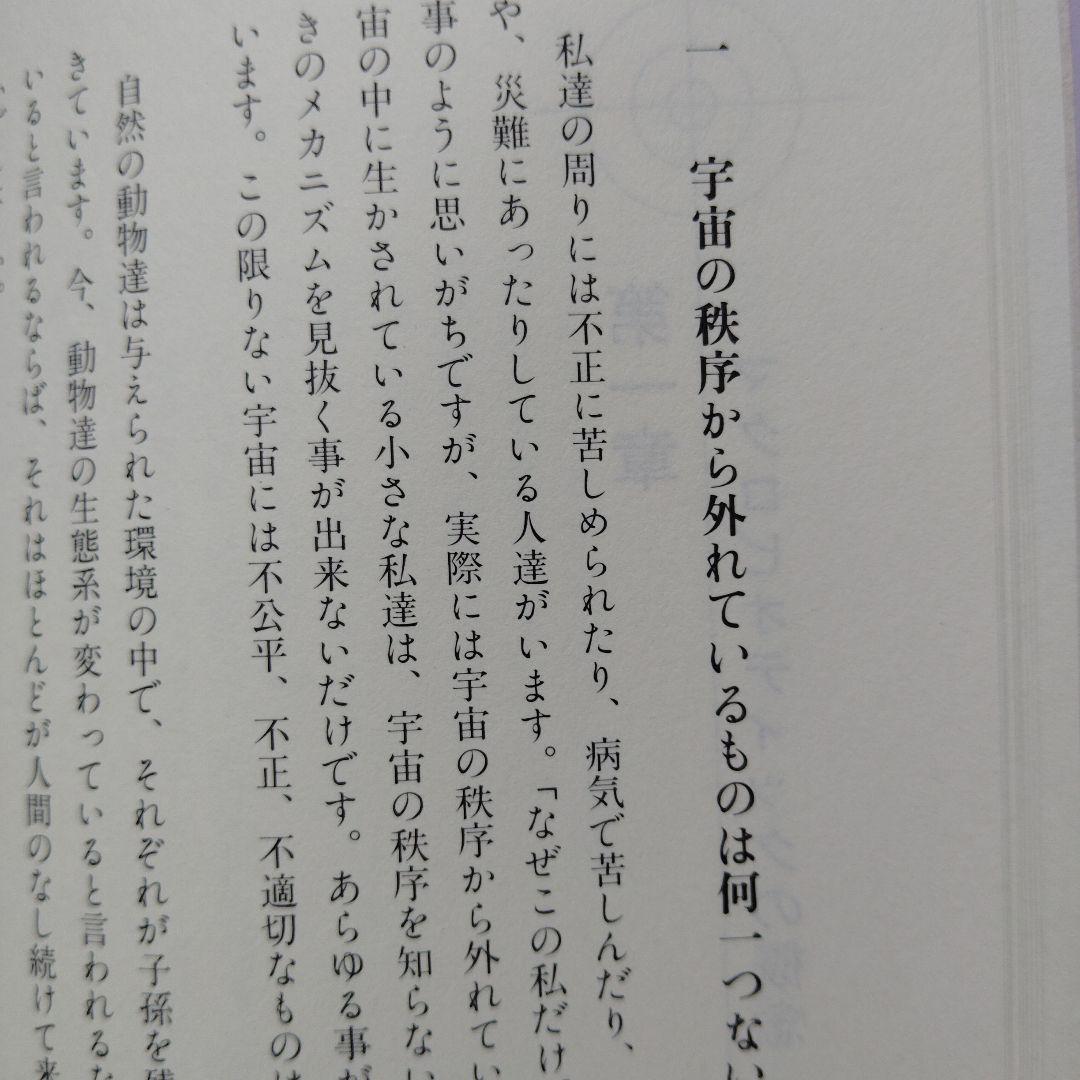 一 宇宙の秩序から外れているものは何一つない
私達の周りには不正に苦しめられたり、病気で苦しんだり、
や、災難にあったりしている人達がいます。「なぜこの私だけ
事のように思いがちですが、実際には宇宙の秩序から外れてい
宙の中に生かされている小さな私達は、宇宙の秩序を知らない
きのメカニズムを見抜く事が出来ないだけです。あらゆる事が
います。この限りない宇宙には不公平、不正、不適切なものは
自然の動物達は与えられた環境の中で、それぞれが子孫を残
きています。今、動物達の生態系が変わっていると言われるな
いると言われるならば、それはほとんどが人間のなし続けて来
第一章